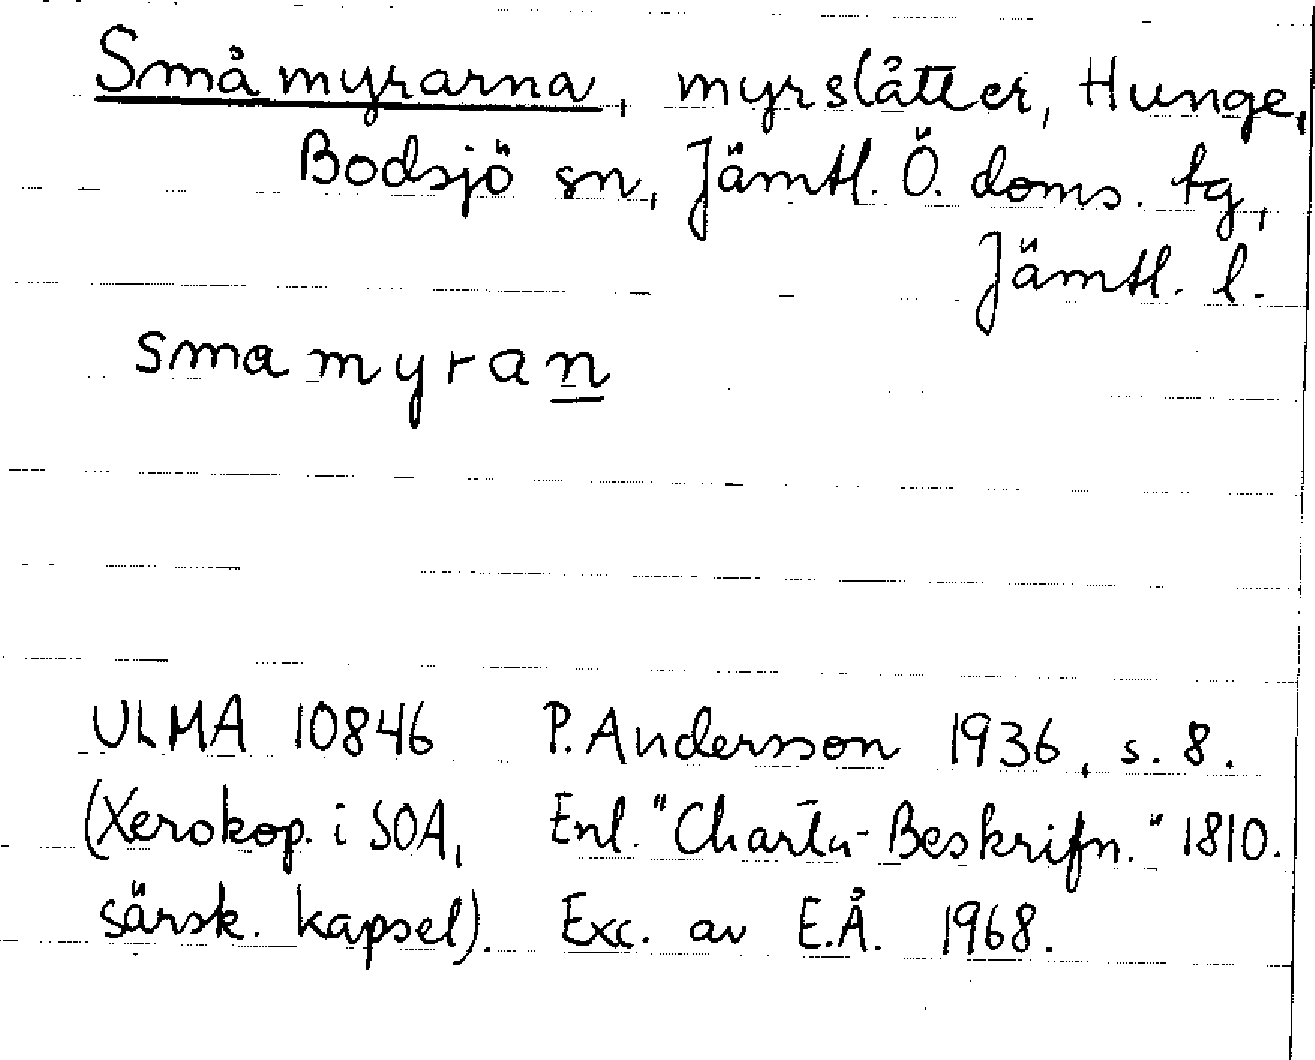 Småmyrarna, myrslåtter, Hunge,
Bodsjö sn, Jämtl. Ö. doms. tg,
Jämtl. l.
smamyran
ULMA 10846 P. Andersson 1936, s. 8.
(Xerokop. i SOA, Enl. "Charta-Beskrifn." 1810.
särsk. kapsel). Exc. av E.Å. 1968.